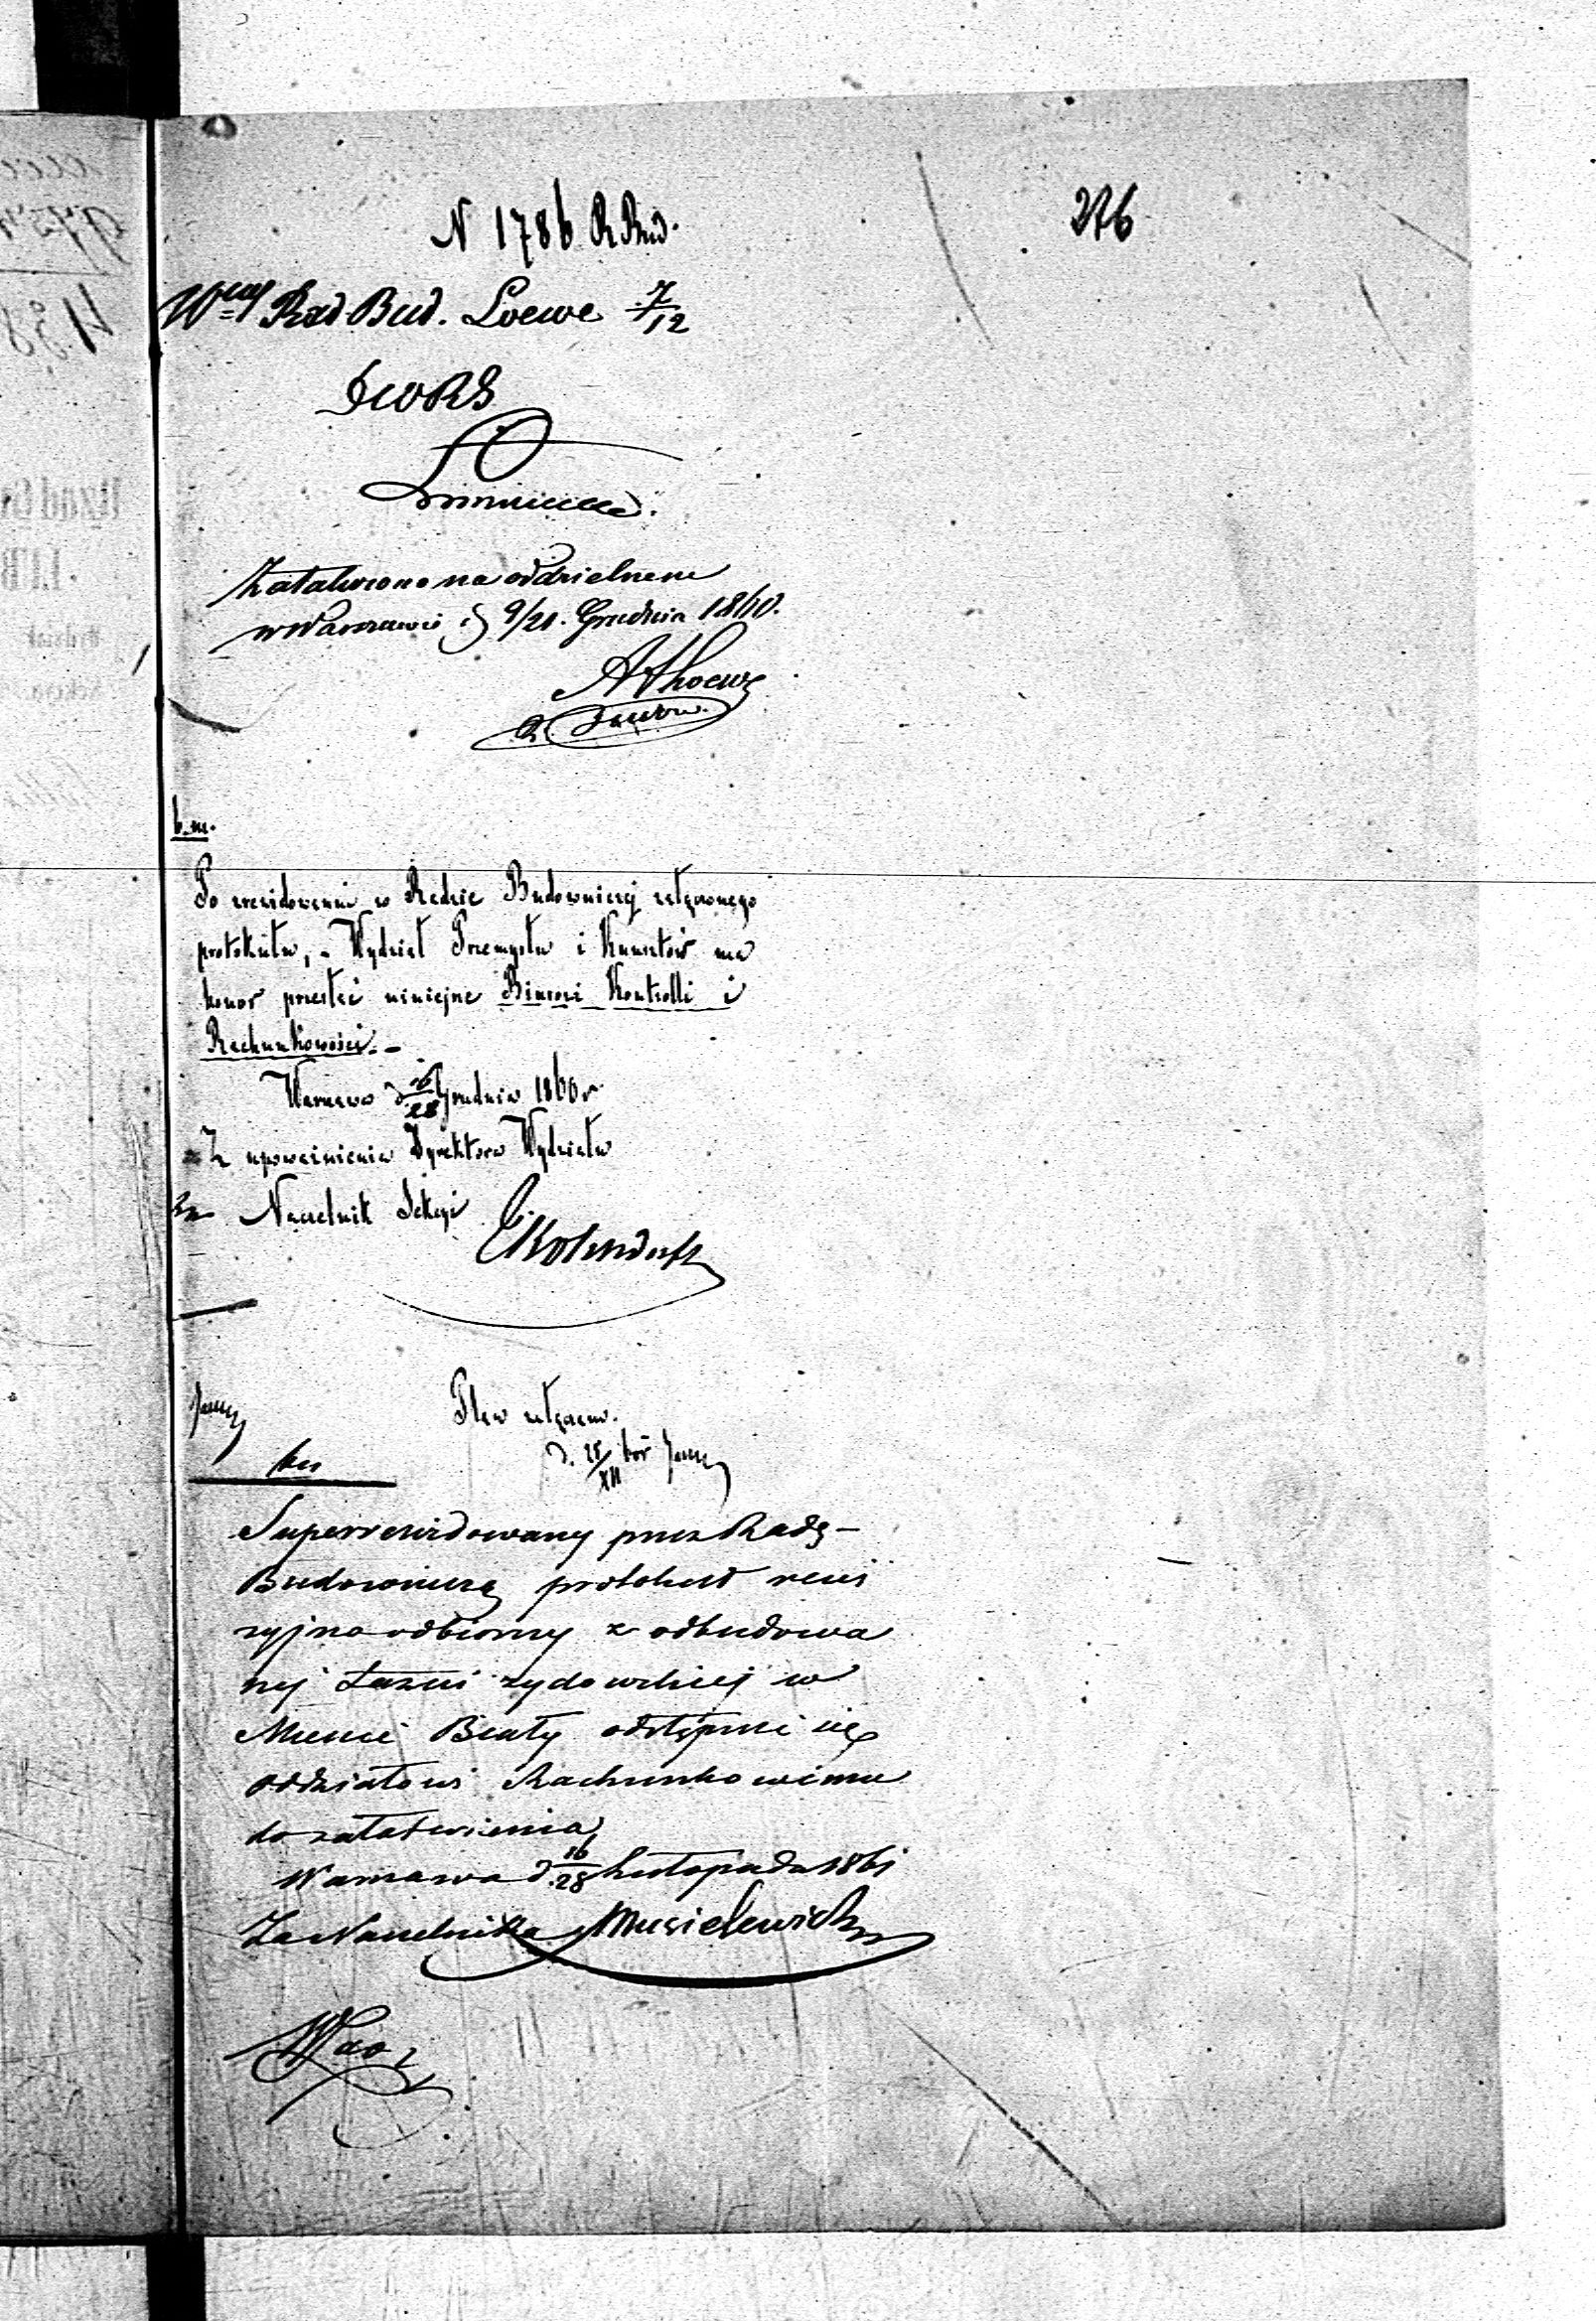 276
N 1786 R Bud.
Wny Rad Bud. Loewe 7/12
Załatwiono na oddzielnem
w Warszawie d 9/21. Grudnia 1860.
A Loewe
b. m.
Po zrewidowaniu w Radzie Budowniczej załączonego
protokułu, - Wydział Przemysłu i Kunsztów ma
honor przesłać niniejsze Biurowi Kontrolli i
Rachunkowości. -
Warszawa d 16/28 Grudnia 1860 r
Z upoważnienia Dyrektora Wydziału
za Naczelnik Sekcyi
Plan załączam.
Superrewidowany przez Radę
Budowniczą protokuł rewi
zyjno odbiorny z odbudowa
nej Łaźni żydowskiej w
Mieście Biały odstępuie się
oddziałowi Rachunkowemu
do załatwienia
Warszawa d 16/28 Listopada 1861
Za Naczelnika Musielewicz